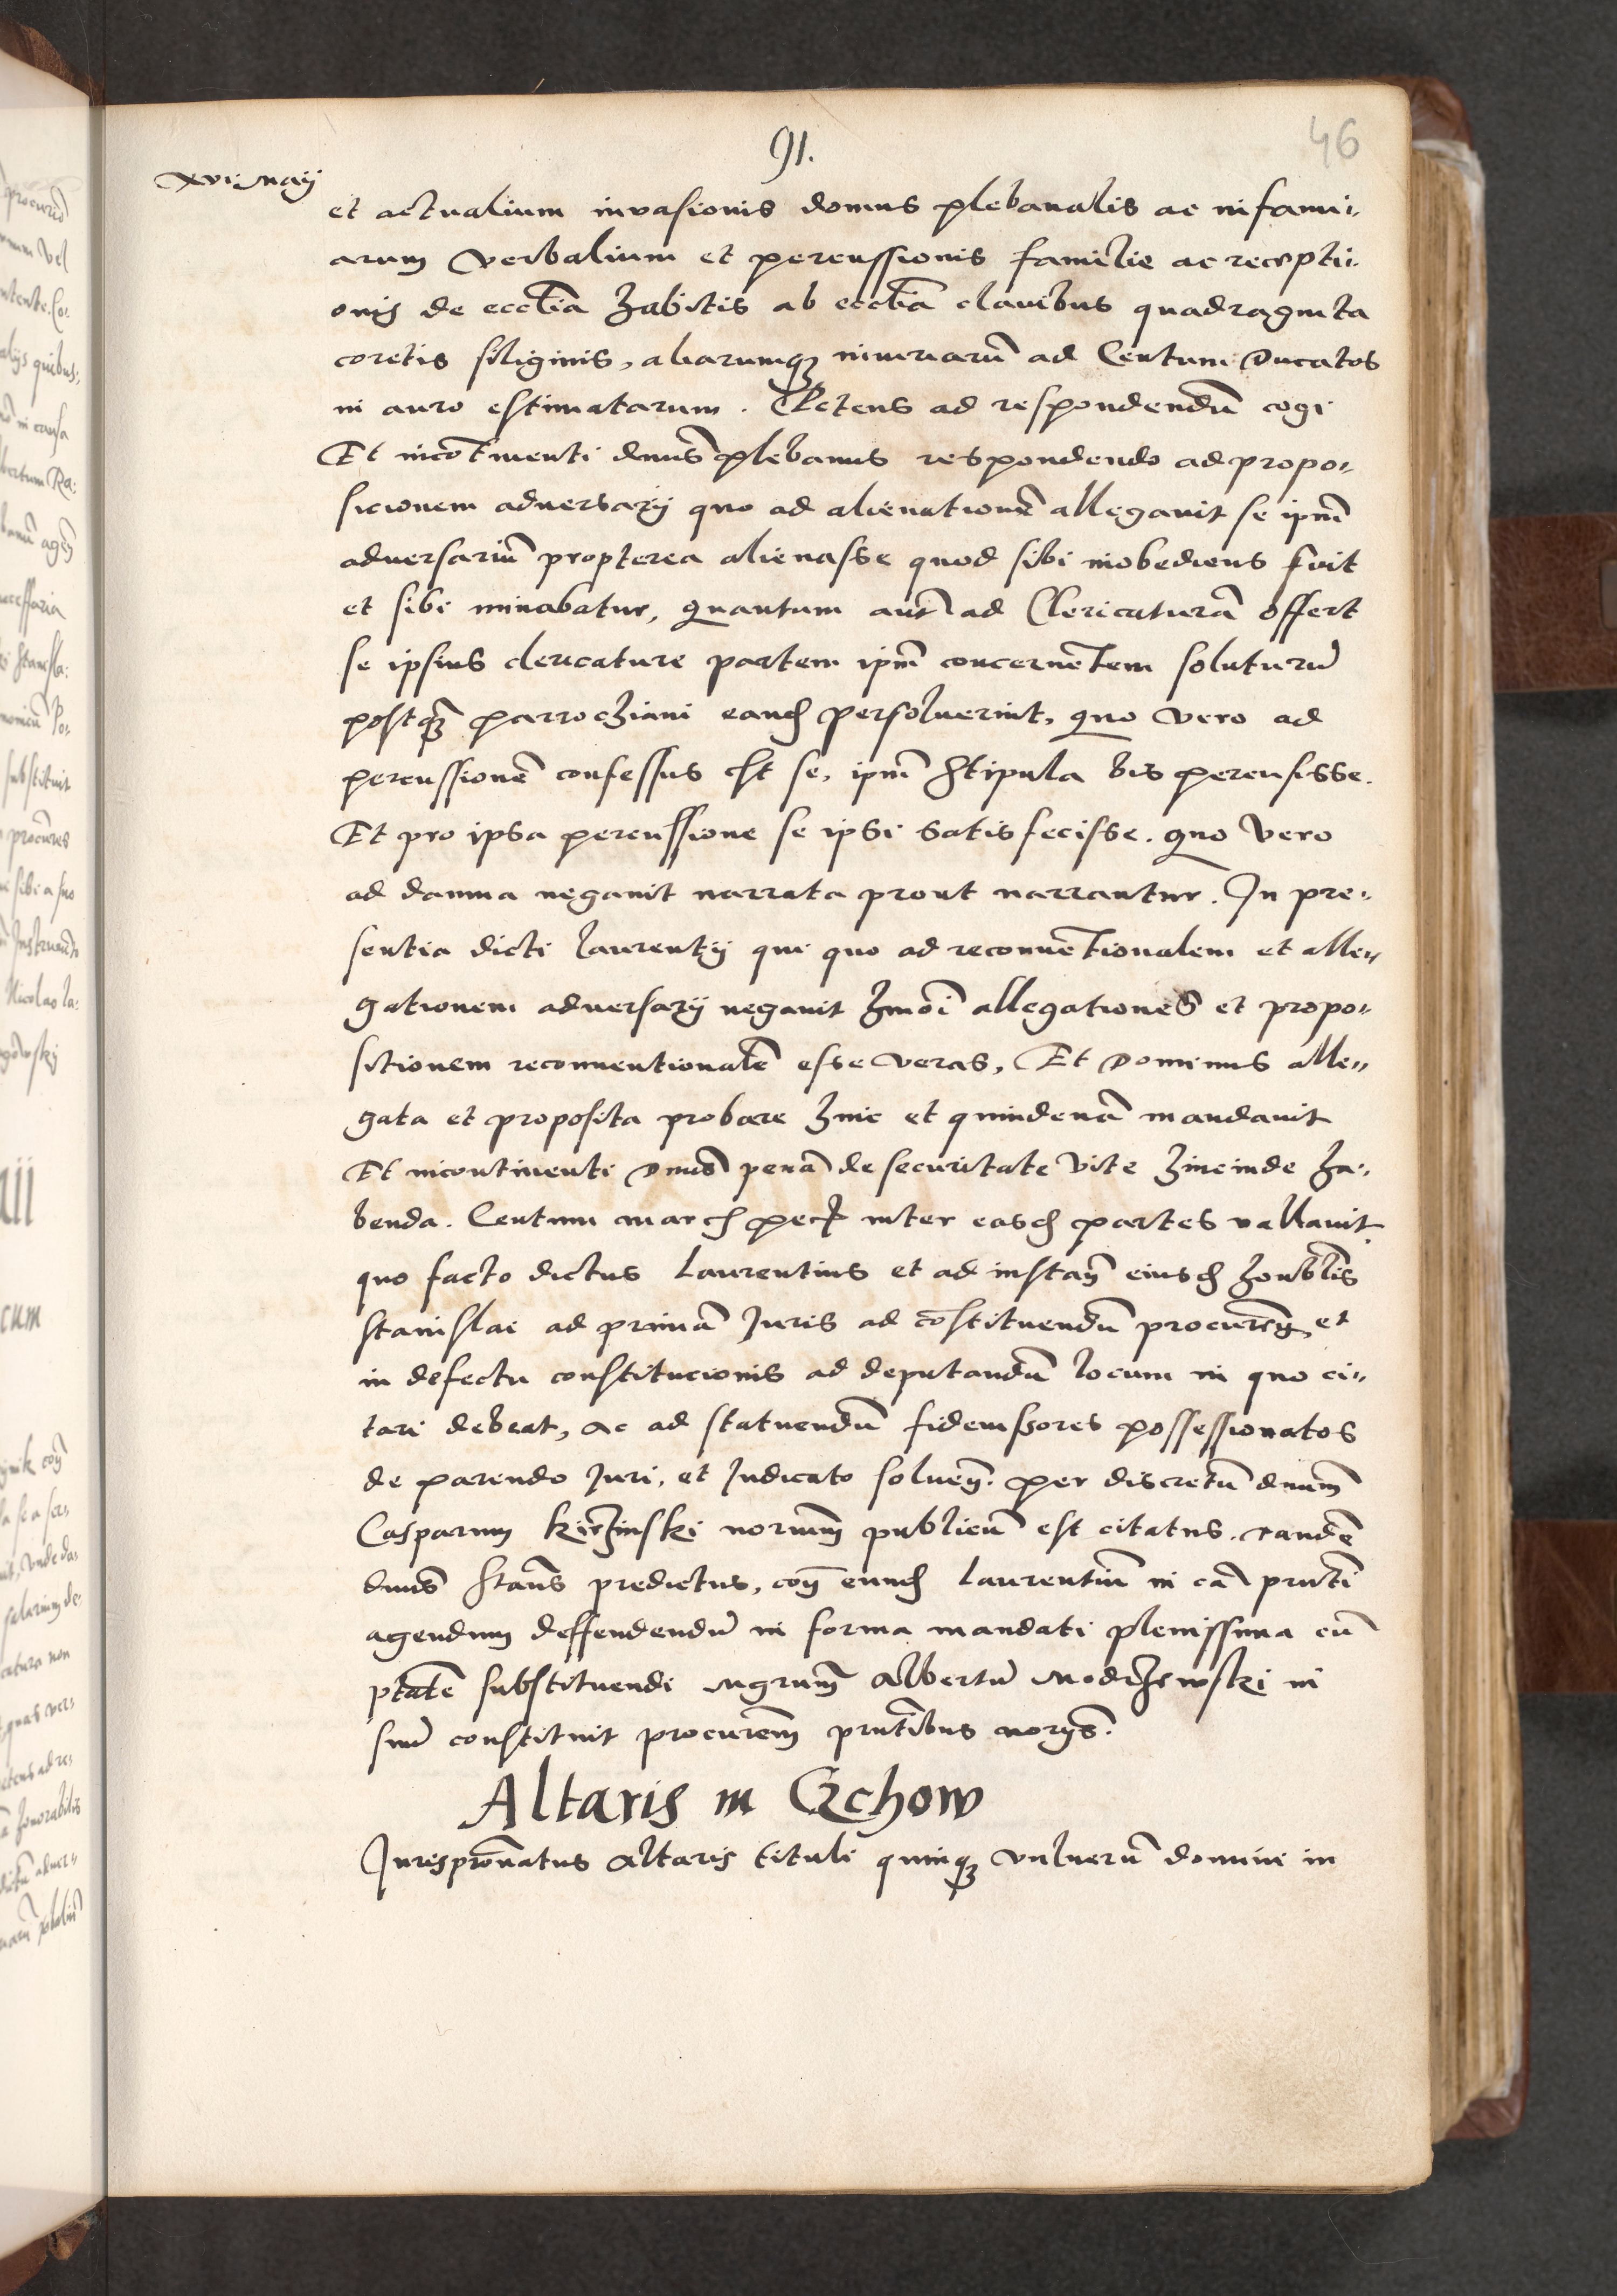 91.
46
xvi maij
et actualium invasionis domus plebanalis ac infami-
arum verbalium et percussionis familie ac recepti-
onis de ecclia habitis ab ecclia clavibus quadraginta
coretis siliginis, aliarumqȝ iniuriarū ad Centum Ducatos
in auro estimatarum. Petens ad respondendū cogi
Et incōtinenti dnus plebanus respondendo ad propo-
sicionem adversarij quo ad alienationē allegavit se ipm̄
adversariū propterea alienasse quod sibi inobediens fuit
et sibi minabatur, quantum aut̄ ad Clericaturā offert
se ipsius clericature partem ipm̄ concernētem soluturū
postqȝ parrochiani eand persoluerint, quo vero ad
percussionē confessus est se, ipm̄ stipula bis percusisse.
Et pro ipsa percussione se ipsi satisfecisse. quo vero
ad damna negavit narrata prout narrantur. In pre-
sentia dicti Laurentij qui quo ad reconuētionalem et alle-
gationem adversarij negavit hmōi allegationes et propo-
sitionem reconventionalē esse veras, Et Dominus alle-
gata et proposita probare hinc et quindenā mandavit
Et incontinenti Dnus penā de securitate vite hincinde ha-
benda. Centum march pec inter easd partes vallavit
quo facto dictus Laurentius et ad instan̄ eiusd honblis
Stanislai ad primā Juris ad cōstituendū procurem̄, et
in defectu constitucionis ad deputandū locum in quo ci-
tari debeat, ac ad statuendū fideiussores possessionatos
de parendo Juri, et Judicato soluen̄. per discretū dnum̄
Casparum kirzinski norium̄ publicū est citatus. Tandē
dnus Stan̄s predictus, con̄ eund Laurentiū in cā pn̄ti
agendum deffendendū in forma mandati plenissima cū
ptatē substituendi mgrum̄ Albertū Modrzewski in
suū constituit procurem̄ pn̄tibus norijs.
Altaris in Czchow
Jurispronatus altaris tituli quinqȝ vulnerū domini in